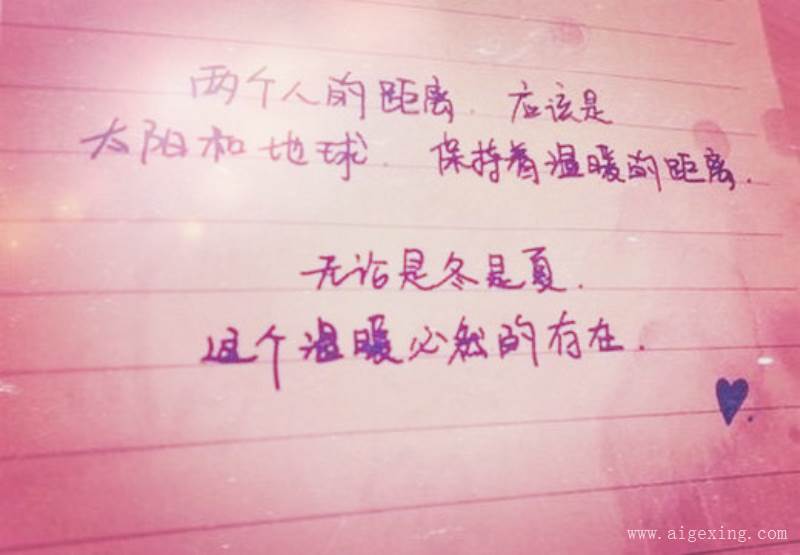 两个人的距离. 应该是
太阳和地球. 保持着温暖的距离.
无论是冬是夏.
这个温暖必然的存在.
www.aigexing.com